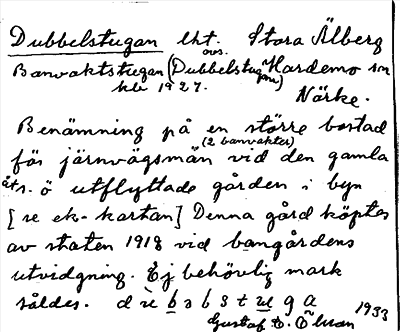 Dubbelstugan lht. Stora Älberg
ovs.
Banvaktstugan (Dubbelstugan) Hardemo sn
hbl 1927. Närke.
Benämning på en större bostad
(2 banvakter)
för järnvägsmän vid den gamla
åt s. ö utflyttade gården i byn
[se ek-kartan] Denna gård köptes
av staten 1918 vid bangårdens
utvidgning. Ej behövlig mark
såldes.
1933
Gustaf